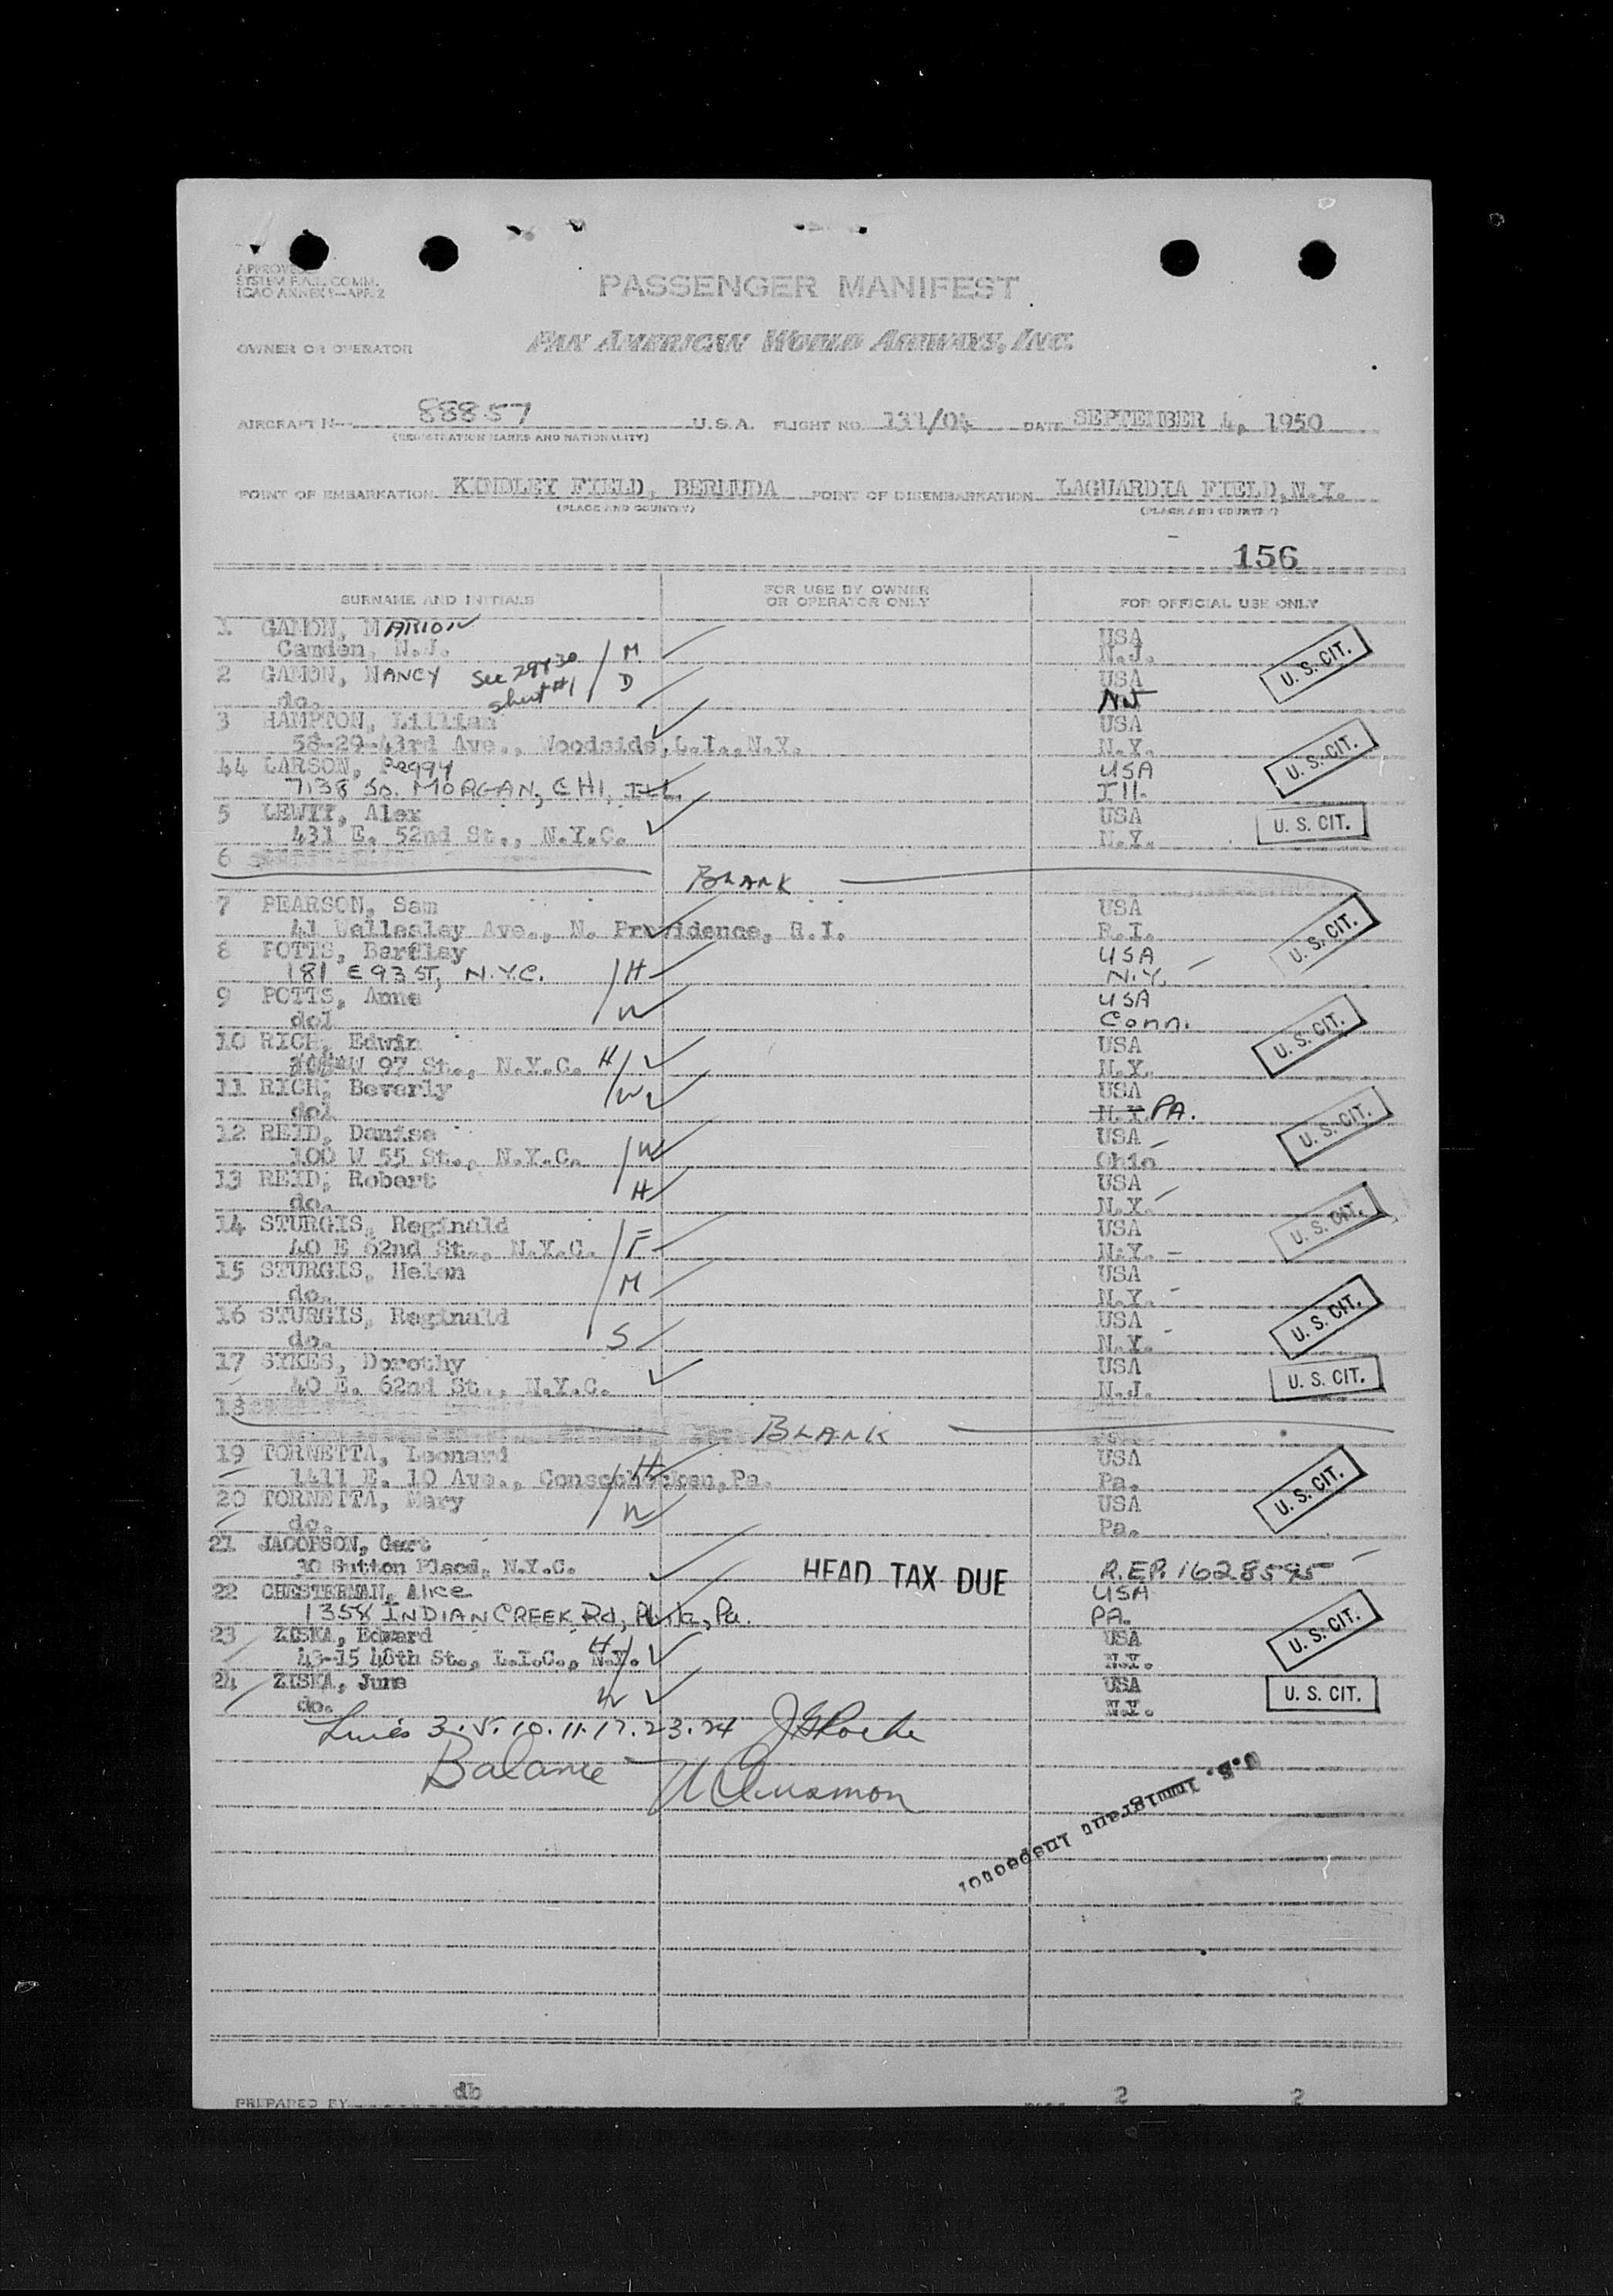 APPROVED
SYSTEM F.A.L. COMM.
ICAO ANNEX 9—APP. 2
PASSENGER MANIFEST
OWNER OR OPERATOR PAN AMERICAN WORLD AIRWAYS, INC.
AIRCRAFT N— 88857 U.S.A. FLIGHT NO. 131/04 DATE SEPTEMBER 4, 1950
(REGISTRATION MARKS AND NATIONALITY)
POINT OF EMBARKATION KINDLEY FIELD, BERMUDA POINT OF DISEMBARKATION LAGUARDIA FIELD, N.Y.
(PLACE AND COUNTRY) (PLACE AND COUNTRY)
156
SURNAME AND INITIALS FOR USE BY OWNER OR OPERATOR ONLY FOR OFFICIAL USE ONLY
1 GAMON, MARION USA
Camden, N.J. M N.J. U. S. CIT.
2 GAMON, NANCY See 29 & 30 D USA
do. sheet #1 NJ
3 HAMPTON, Lillian USA
58-29-43rd Ave., Woodside, L.I., N.Y. N.Y. U. S. CIT.
44 LARSON, Peggy USA
7138 So. MORGAN, CHI, ILL. Ill.
5 LEWIT, Alex USA
431 E. 52nd St., N.Y.C. N.Y. U. S. CIT.
6
BLANK
7 PEARSON, Sam USA
41 Wallesley Ave., N. Providence, R.I. R.I. U. S. CIT.
8 POTTS, Bartley USA
181 E 93 ST, N.Y.C. H N.Y.
9 POTTS, Anne USA
dol W Conn. U. S. CIT.
10 RICH, Edwin USA
W 97 St., N.Y.C. H N.Y.
11 RICH, Beverly W USA
dol N.Y. PA. U. S. CIT.
12 REID, Danise USA
100 W 55 St., N.Y.C. W Ohio
13 REID, Robert H USA
do. N.Y. U. S. CIT.
14 STURGIS, Reginald USA
40 E 62nd St., N.Y.C. F N.Y.
15 STURGIS, Helen M USA
do. N.Y.
16 STURGIS, Reginald USA
do. S N.Y. U. S. CIT.
17 SYKES, Dorothy USA
40 E. 62nd St., N.Y.C. N.J. U. S. CIT.
18
BLANK
19 TORNETTA, Leonard H USA
1411 E. 10 Ave., Conschocken, Pa. Pa. U. S. CIT.
20 TORNETTA, Mary W USA
do. Pa.
21 JACOBSON, Gert
30 Sutton Place, N.Y.C. HEAD TAX DUE R.E.P. 1628595
22 CHESTERMAN, Alice USA
1358 INDIAN CREEK Rd, Phila, Pa. PA. U. S. CIT.
23 ZISKA, Edward USA
43-15 48th St., L.I.C., N.Y. H N.Y.
24 ZISKA, June USA
do. W N.Y. U. S. CIT.
Lines 3. 5. 10. 11. 17. 23. 24
Balance
U.S. Immigrant Inspector
PREPARED BY db 2 2